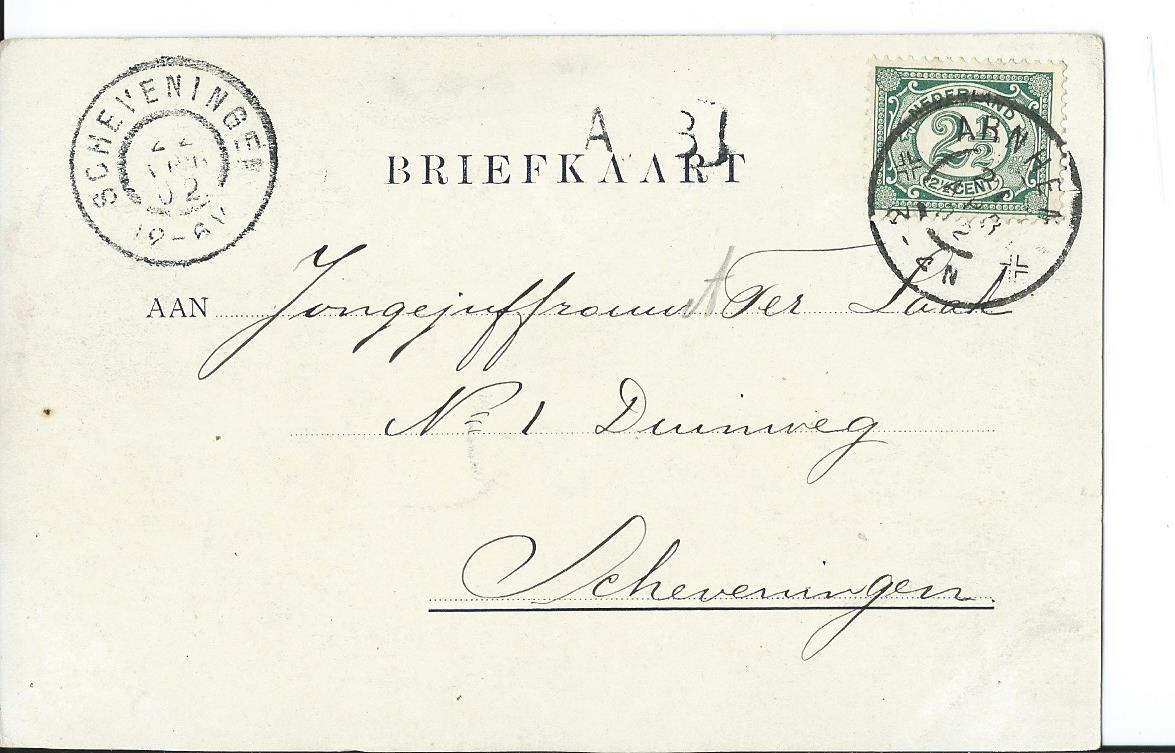 SCHEVENINGEN
A 3J
BRIEFKAART
NEDERLAND
2½
(2½ CENT)
ARNHEM
AAN Jongejuffrouw Ter Laak
No 1 Duinweg
Scheveningen